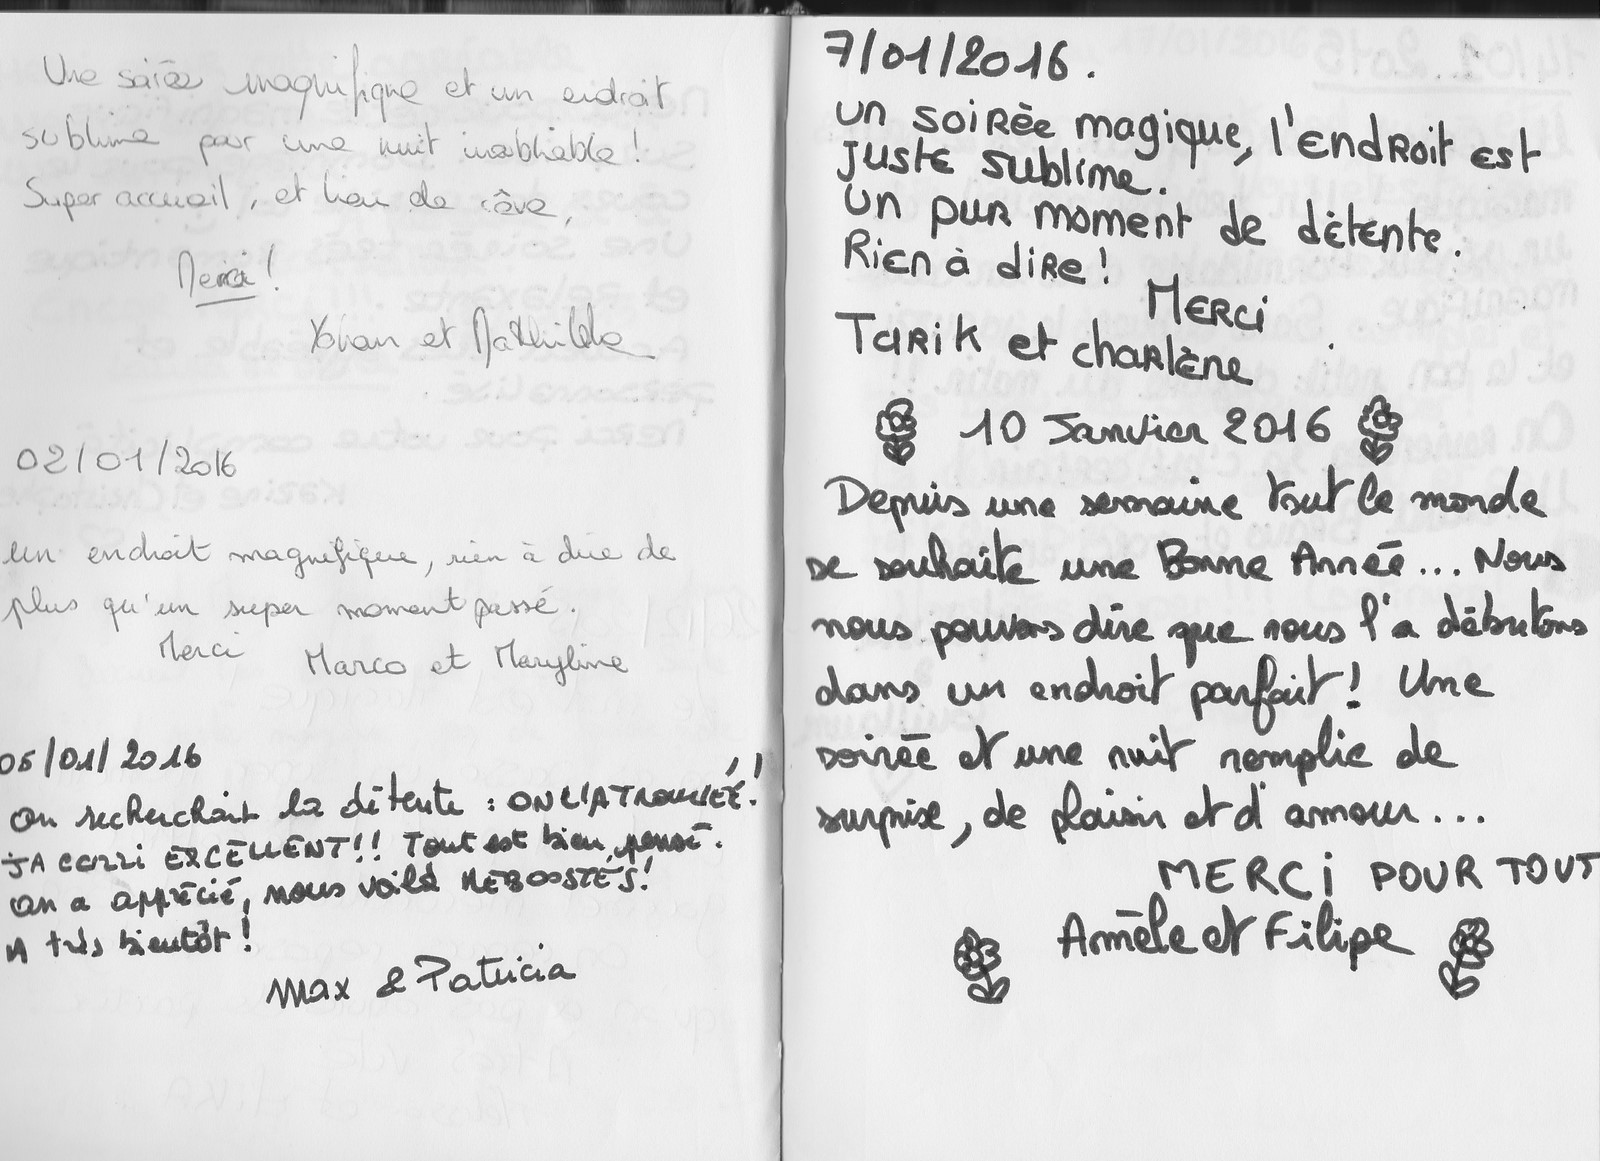 Une soirée magnifique et un endroit
sublime pour une nuit inoubliable !
Super accueil, et lieu de rêve,
Merci !
Yohan et Mathilde
02/01/2016
un endroit magnifique, rien à dire de
plus qu'un super moment passé.
Merci
Marco et Maryline
05/01/2016
On recherchait la détente : ON L'A TROUVÉE !!
JACUZZI EXCELLENT!! Tout est bien pensé.
On a apprécié, nous voilà REBOOSTÉS!
A très bientôt !
Max & Patricia
7/01/2016.
un soirée magique, l'endroit est
juste sublime.
un pur moment de détente.
Rien à dire !
MERCi
Tarik et charlène
10 Janvier 2016
Depuis une semaine tout le monde
se souhaite une Bonne Année... Nous
nous pouvons dire que nous l'a débutons
dans un endroit parfait ! Une
soirée et une nuit remplie de
surprise, de plaisir et d'amour...
MERCi POUR TOUT
Amèle et Filipe